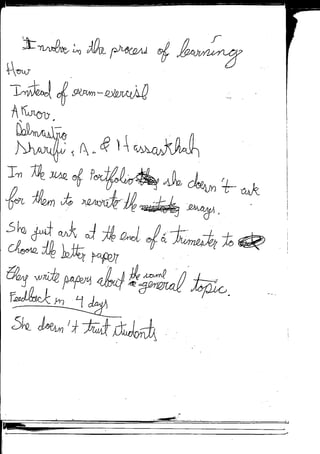 Involve in the process of learning
How
Instead of exam-exercise
Akirov,
Dalmastro
Sharifi, A. & Hassaskhah
In the use of Portfolio she doesn't ask
for them to rewrite the essays.
She just ask at the end of a trimester to
choose the better paper
They write papers about the same general topic.
Feedback in 4 days
She doesn't trust students